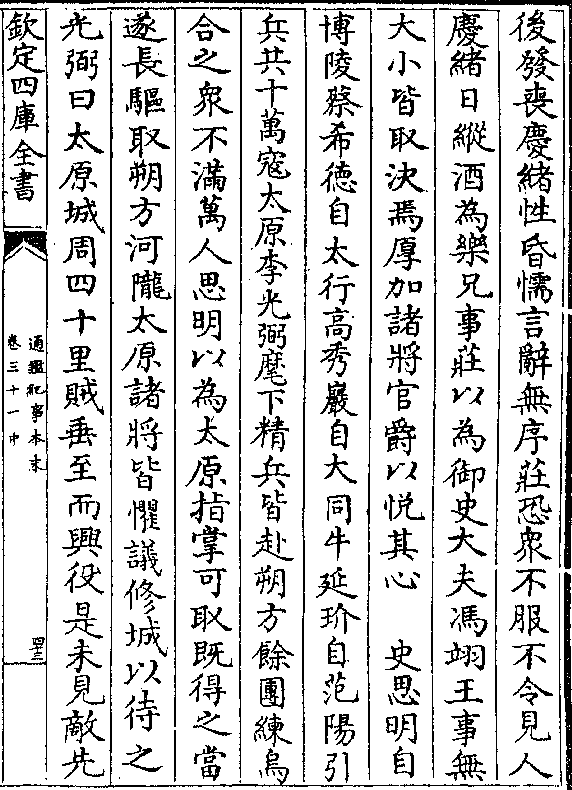 後發喪慶緒性昏懦言辭無序莊恐衆不服不令見人
慶緒日縱酒為樂兄事莊以為御史大夫馮翊王事無
大小皆取決焉厚加諸將官爵以悦其心　史思明自
博陵蔡希德自太行高秀巖自大同牛延玠自范陽引
兵共十萬寇太原李光弼麾下精兵皆赴朔方餘團練烏
合之衆不滿萬人思明以為太原指掌可取既得之當
遂長驅取朔方河隴太原諸將皆懼議修城以待之
光弼曰太原城周四十里賊垂至而興役是未見敵先
欽定四庫全書
通鑑紀事本末
卷三十一中
四三